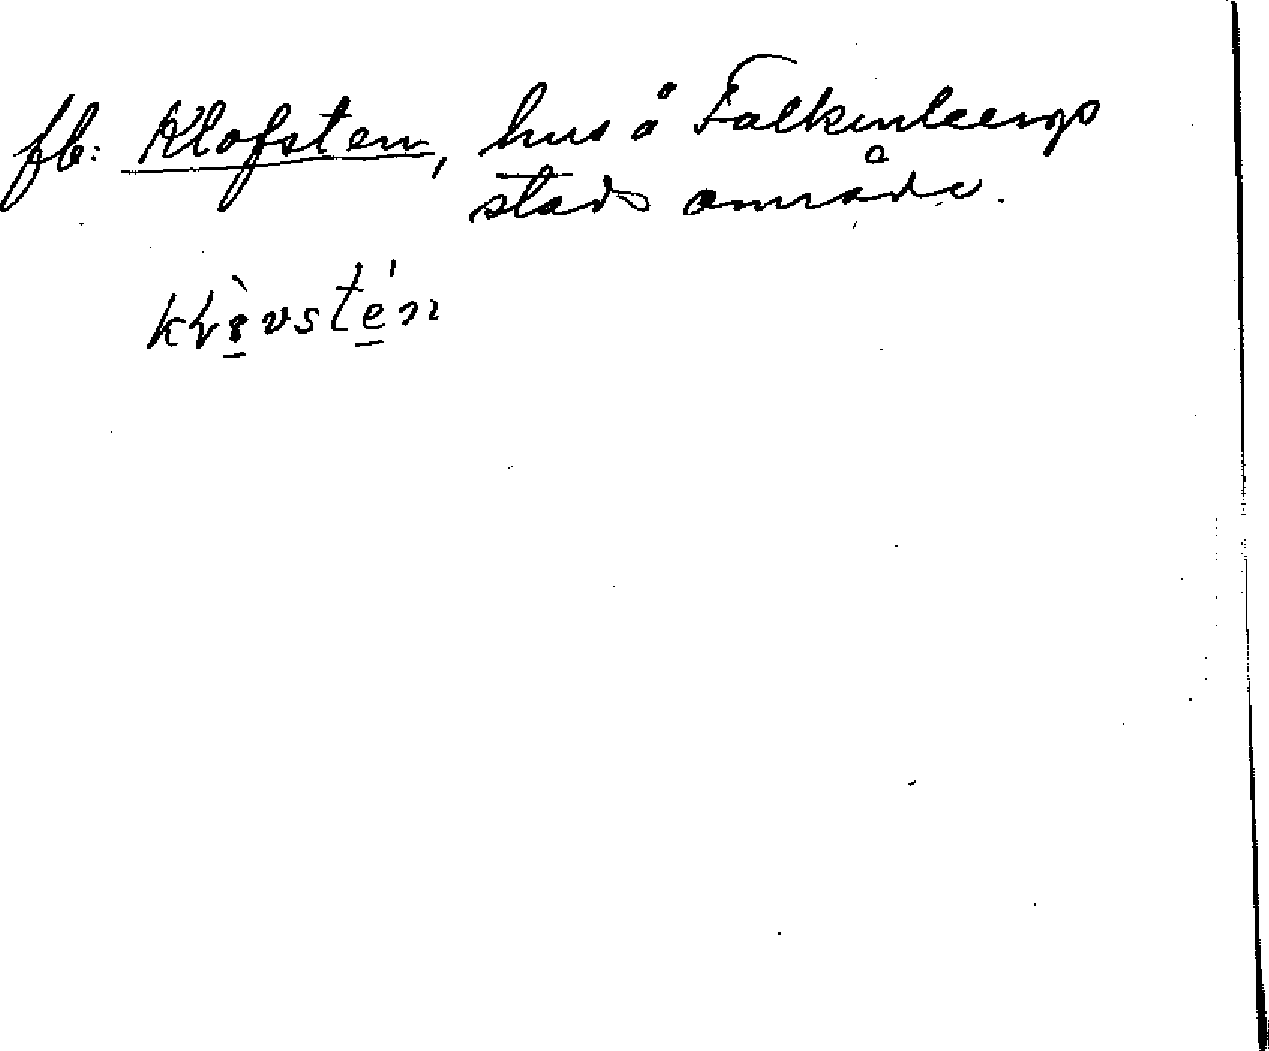 fb: Klofsten, hus å Falkenbergs
stads område.